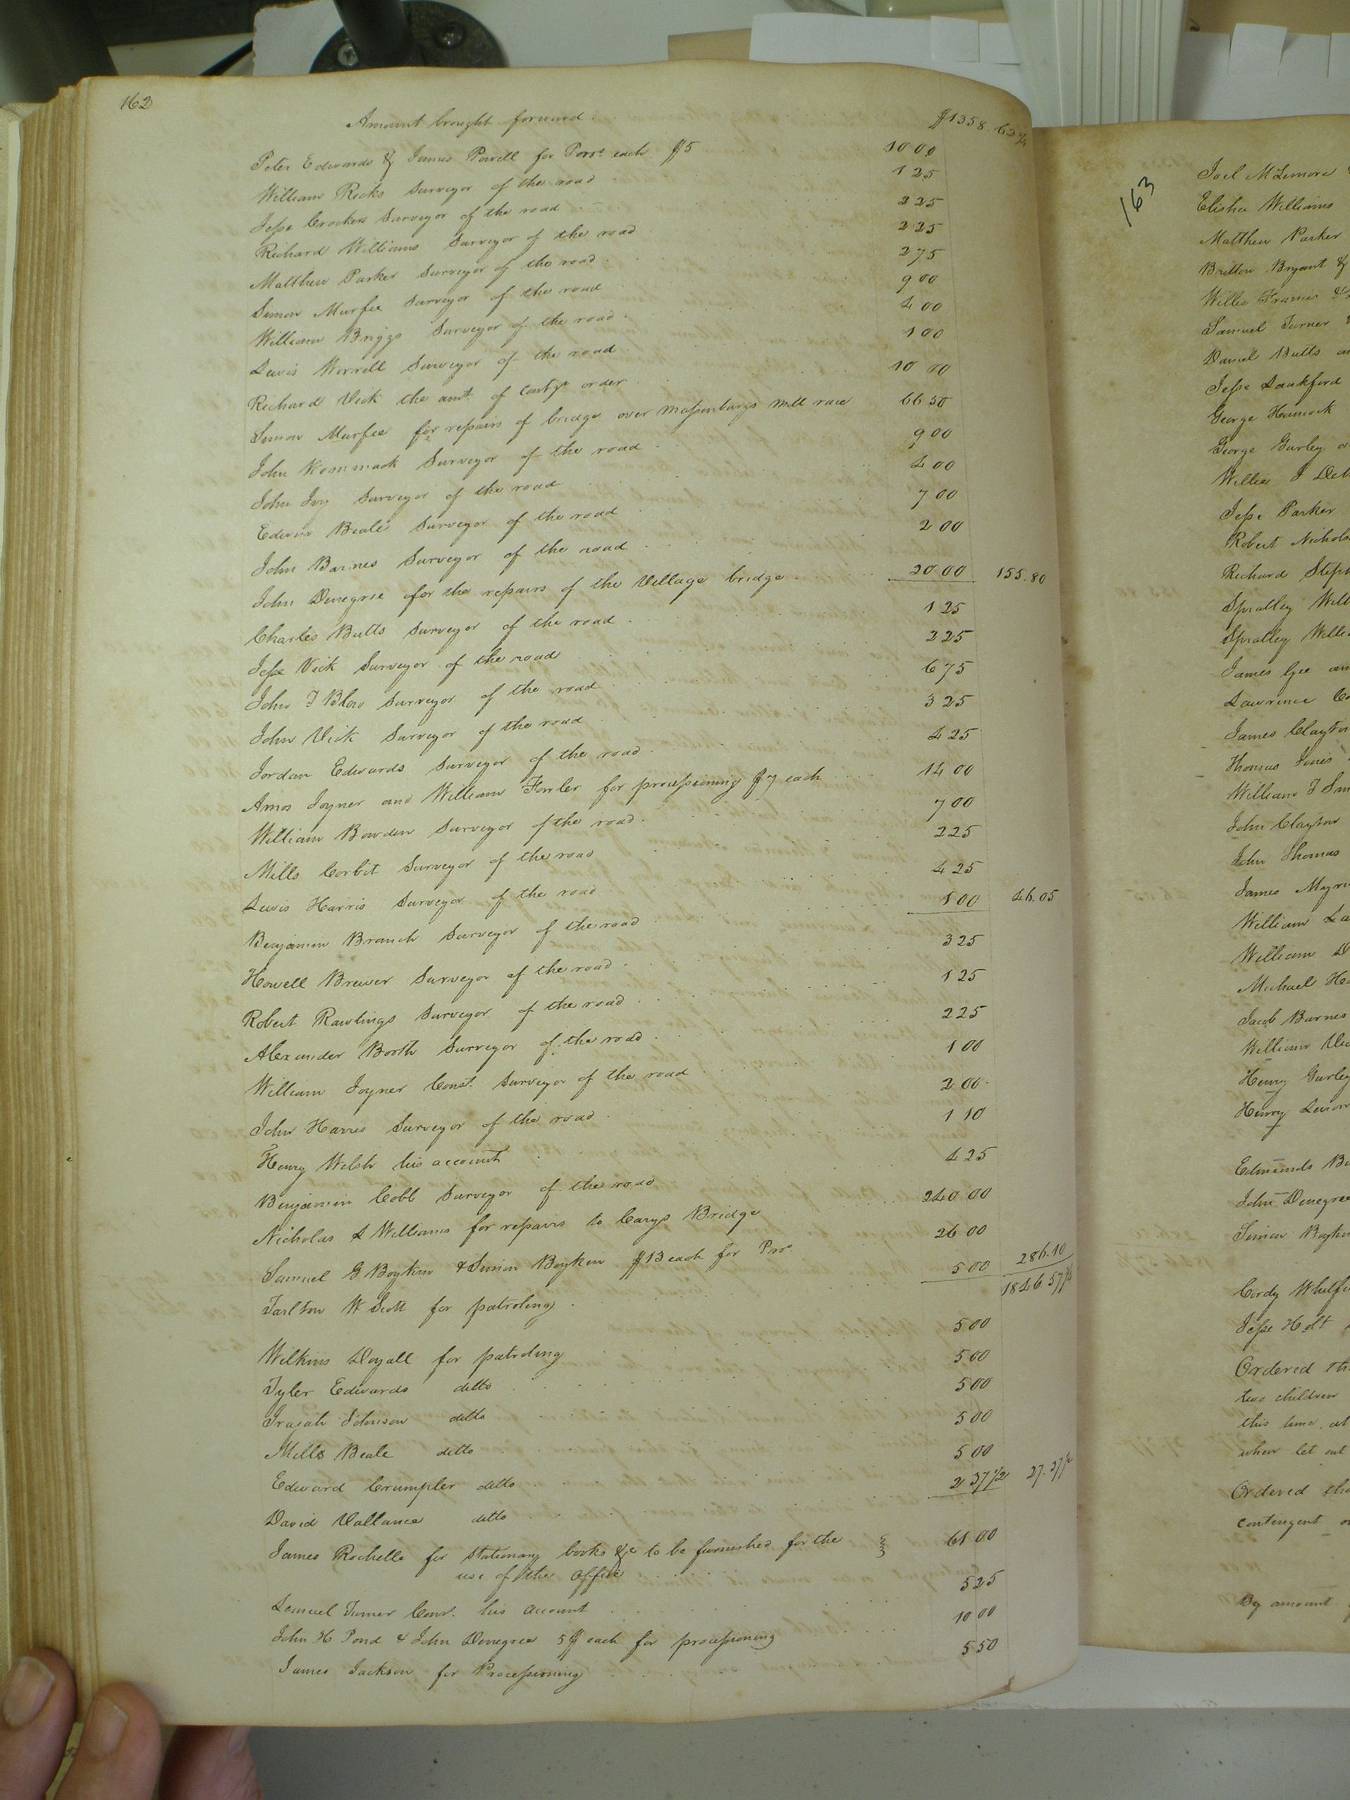 162
Amount brought forward $1358 62 3/4
Peter Edwards & James Powell for Pors. each $5 10 00
William Ricks Surveyor of the road 1 25
Jesse Crocker Surveyor of the road 2 25
Richard Williams Surveyor of the road 2 25
Matthew Parker Surveyor of the road 2 75
Simon Murfee Surveyor of the road 9 00
William Briggs Surveyor of the road 4 00
Lewis Worrell Surveyor of the road 1 00
Richard Vick the amt. of order 10 00
Simon Murfee for repairs of bridge over Massenburgs mill race 66 30
John Kommack Surveyor of the road 9 00
John Ivy Surveyor of the road 4 00
Edwin Beale Surveyor of the road 7 00
John Barnes Surveyor of the road 2 00
John Denegree for the repairs of the Village bridge 20 00 155.80
Charles Butts Surveyor of the road 1 25
Jesse Vick Surveyor of the road 2 25
John T Blow Surveyor of the road 6 75
John Vick Surveyor of the road 3 25
Jordan Edwards Surveyor of the road 4 25
Amos Joyner and William Fowler for processioning $7 each 14 00
William Bowden Surveyor of the road 7 00
Mills Corbit Surveyor of the road 2 25
Lewis Harris Surveyor of the road 4 25
Benjamin Branch Surveyor of the road 1 00 46.05
Howell Brewer Surveyor of the road 3 25
Robert Rawlings Surveyor of the road 1 25
Alexander Booth Surveyor of the road 2 25
William Joyner Const. Surveyor of the road 1 00
John Harris Surveyor of the road 2 00
Henry Welsh his account 1 10
Benjamin Cobb Surveyor of the road 4 25
Nicholas L Williams for repairs to Carys Bridge 240 00
Samuel G Boykin & Simon Boykin $13 each for Pro. 26 00
Tarlton W Scott for patroling 5 00 286.10
1846.57 1/2
Wilkins Doyall for patroling 5 00
Tyler Edwards ditto 5 00
Isaiah Johnson ditto 5 00
Mills Beale ditto 5 00
Edward Crumpler ditto 5 00
David Vallance ditto 2 37 1/2 27.37 1/2
James Rochelle for stationary books &c to be furnished for the 61 00
use of the office
Lemuel Turner Con. his account 5 25
John H Pond & John Denegree 5$ each for processioning 10 00
James Jackson for Processioning 5 50
163
Joel McLemore
Elisha Williams
Matthew Parker
Britton Bryant &
Willie Francis
Samuel Turner
Daniel Butts
Jesse Lankford
George Hancock
George Gurley
Jesse Parker
Robert Nichols
Richard Steph
Spratley Will
Spratley Willi
James Gee an
Lawrence Co
James Clayton
Thomas Jones
William T Sim
John Clayton
John Thomas
James Magn
William La
William D
Michael Ha
Jacob Barnes
William Vic
Henry Gurley
Henry
Edmunds Ba
John Denegree
Simon Boykin
Cordy Whitfi
Jesse Holt
Ordered tha
two children
this time
when let out
Ordered tha
contingent
By amount